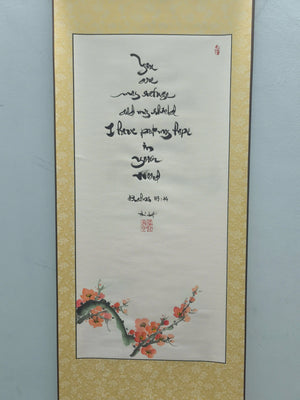 You
are
my refuge
and my shield
I have put my hope
in
your
Word
Psalms 119:114